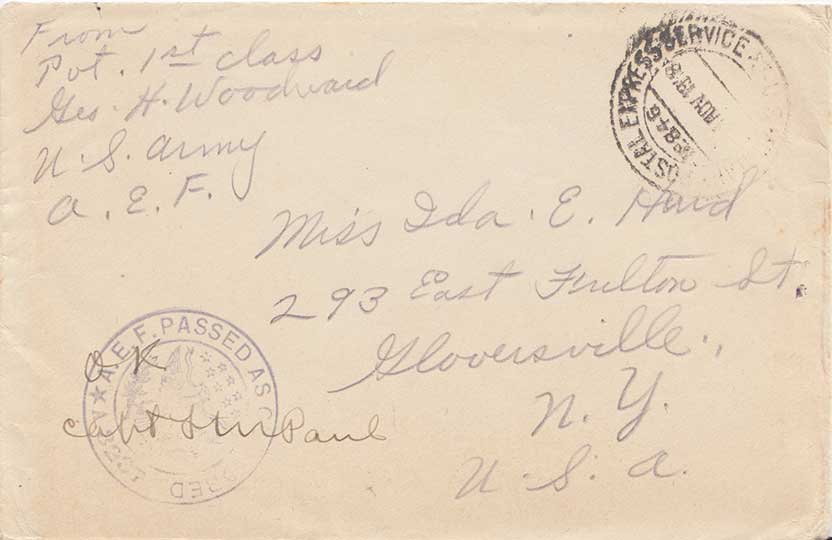 From
Pvt. 1st class
Geo. H. Woodward
U.S. Army
A.E.F.
POSTAL EXPRESS SERVICE
NOV 19
846
Miss Ida. E. Hurd
293 East Fulton St.
Gloversville,
N.Y.
U.S.A.
A.E.F. PASSED AS
OK
Capt Paul